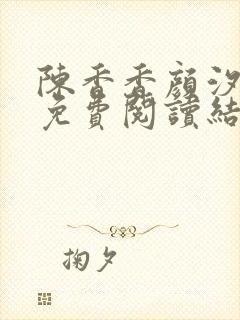 陳香香顏汐
免費閱讀結
掬夕